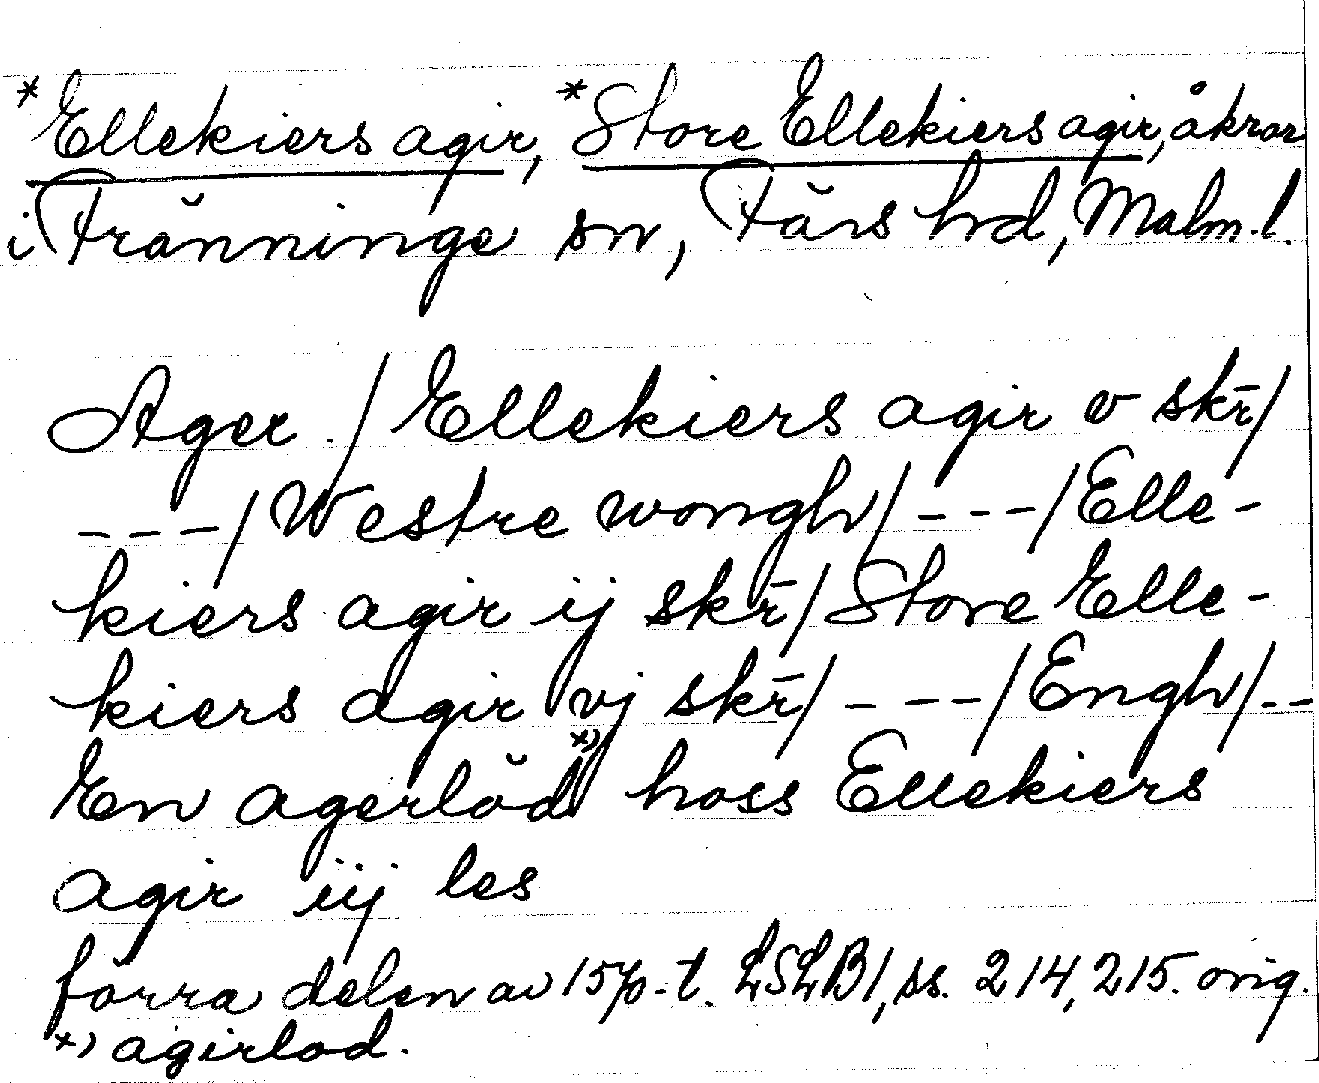 *Ellekiers agir, *Store Ellekiers agir, åkrar
i Fränninge sn, Färs hd, Malm.l.
Ager / Ellekiers agir v skr̄/
---/ Westre wongh/ ---/ Elle-
kiers agir ij skr̄/ Store Elle-
kiers agir vj skr̄/ ---/ Engh/--
En agerlŏd*) hoss Ellekiers
agir iij les
förra delen av 1570-t. LSLB1, ss. 214, 215. orig.
*) agirlod.